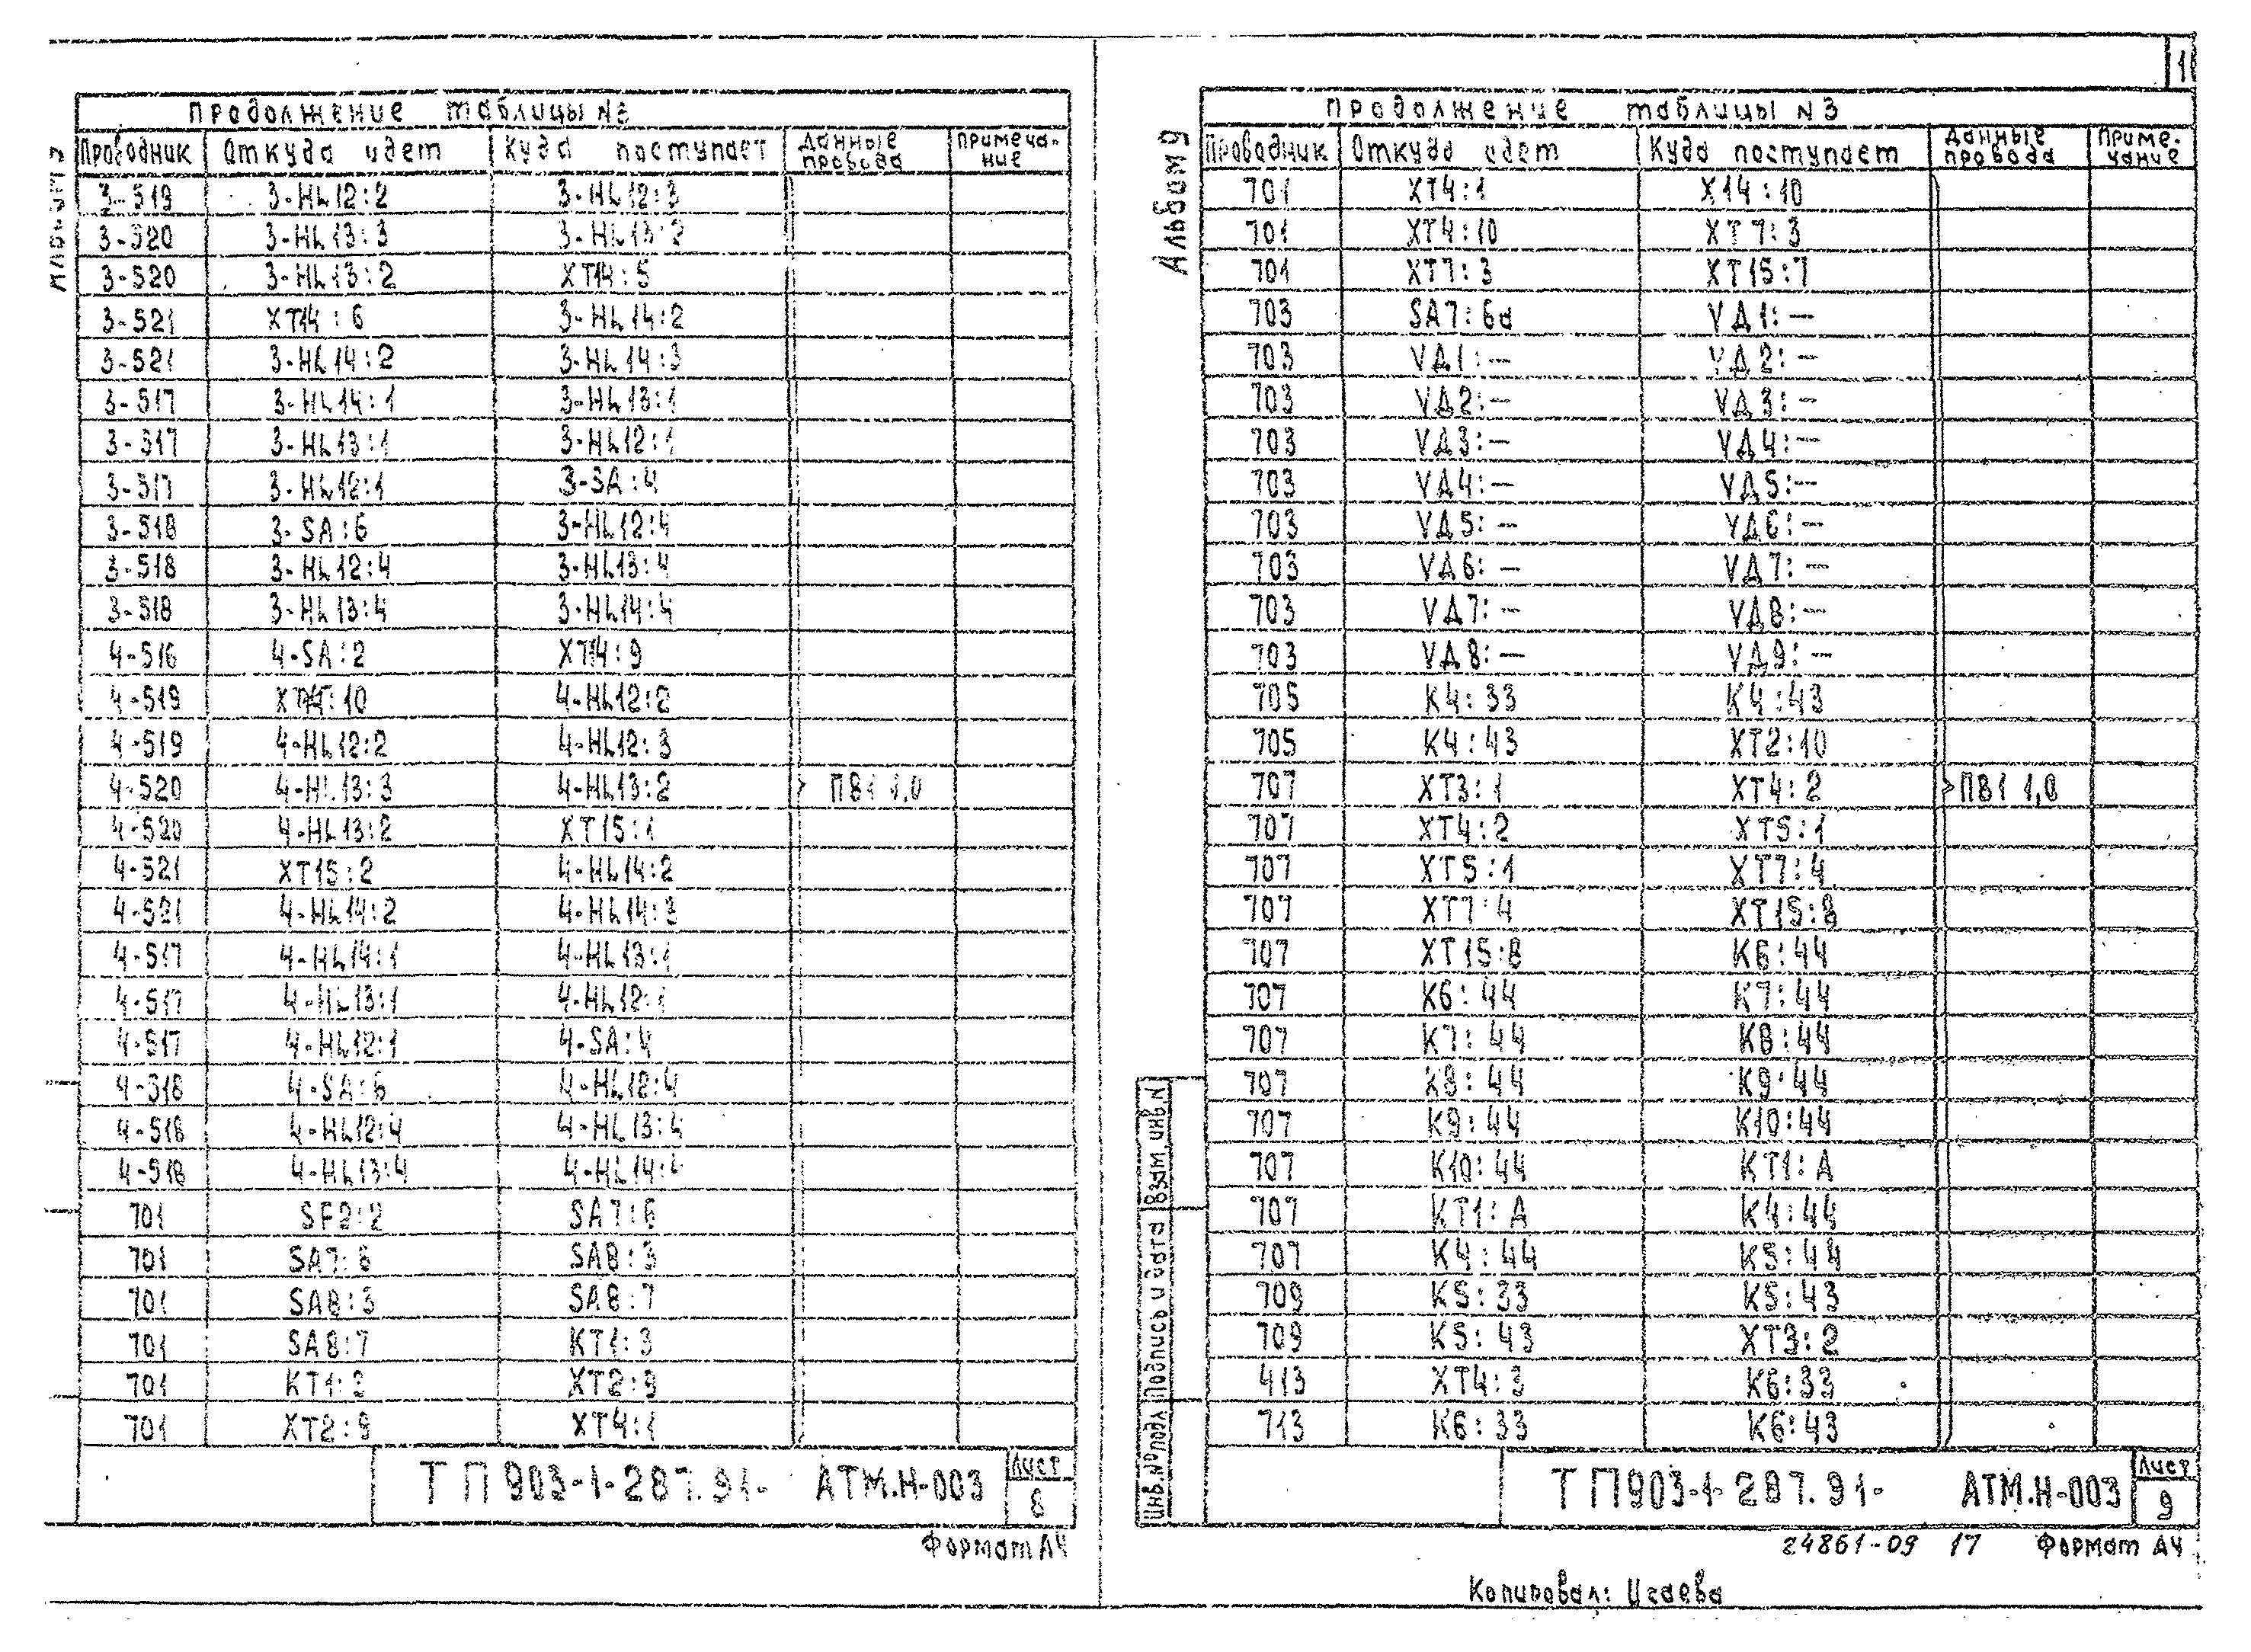 Продолжение таблицы N3
Проводник Откуда идет Куда поступает Данные провода Примеча-ние
3-519 3-HL12:2 3-HL12:3
3-520 3-HL13:3 3-HL13:2
3-520 3-HL13:2 XT14:5
3-521 XT14:6 3-HL14:2
3-521 3-HL14:2 3-HL14:3
3-517 3-HL14:1 3-HL13:1
3-517 3-HL13:1 3-HL12:1
3-517 3-HL12:1 3-SA:4
3-518 3-SA:6 3-HL12:4
3-518 3-HL12:4 3-HL13:4
3-518 3-HL13:4 3-HL14:4
4-516 4-SA:2 XT14:9
4-519 XT14:10 4-HL12:2
4-519 4-HL12:2 4-HL12:3
4-520 4-HL13:3 4-HL13:2 ПВ1 1,0
4-520 4-HL13:2 XT15:1
4-521 XT15:2 4-HL14:2
4-521 4-HL14:2 4-HL14:3
4-517 4-HL14:1 4-HL13:1
4-517 4-HL13:1 4-HL12:1
4-517 4-HL12:1 4-SA:4
4-518 4-SA:6 4-HL12:4
4-518 4-HL12:4 4-HL13:4
4-518 4-HL13:4 4-HL14:4
701 SF2:2 SA7:6
701 SA7:6 SA8:3
701 SA8:3 SA8:7
701 SA8:7 KT1:3
701 KT1:3 XT2:9
701 XT2:9 XT4:1
ТП 903-1-287.91- АТМ.Н-003 Лист 8
Формат А4
11
Альбом 9
Продолжение таблицы N3
Проводник Откуда идет Куда поступает Данные провода Приме-чание
701 XT4:1 XT4:10
701 XT4:10 XT7:3
701 XT7:3 XT15:7
703 SA7:6a VД1:—
703 VД1:— VД2:—
703 VД2:— VД3:—
703 VД3:— VД4:—
703 VД4:— VД5:—
703 VД5:— VД6:—
703 VД6:— VД7:—
703 VД7:— VД8:—
703 VД8:— VД9:—
705 K4:33 K4:43
705 K4:43 XT2:10
707 XT3:1 XT4:2 ПВ1 1,0
707 XT4:2 XT5:1
707 XT5:1 XT7:4
707 XT7:4 XT15:8
707 XT15:8 K6:44
707 K6:44 K7:44
707 K7:44 K8:44
707 K8:44 K9:44
707 K9:44 K10:44
707 K10:44 KT1:A
707 KT1:A K4:44
707 K4:44 K5:44
709 K5:33 K5:43
709 K5:43 XT3:2
413 XT4:3 K6:33
713 K6:33 K6:43
Инв.№ подл Подпись и дата Взам.инв.N
ТП 903-1-287.91- АТМ.Н-003 Лист 9
24861-09 17 Формат А4
Копировал: Исаева